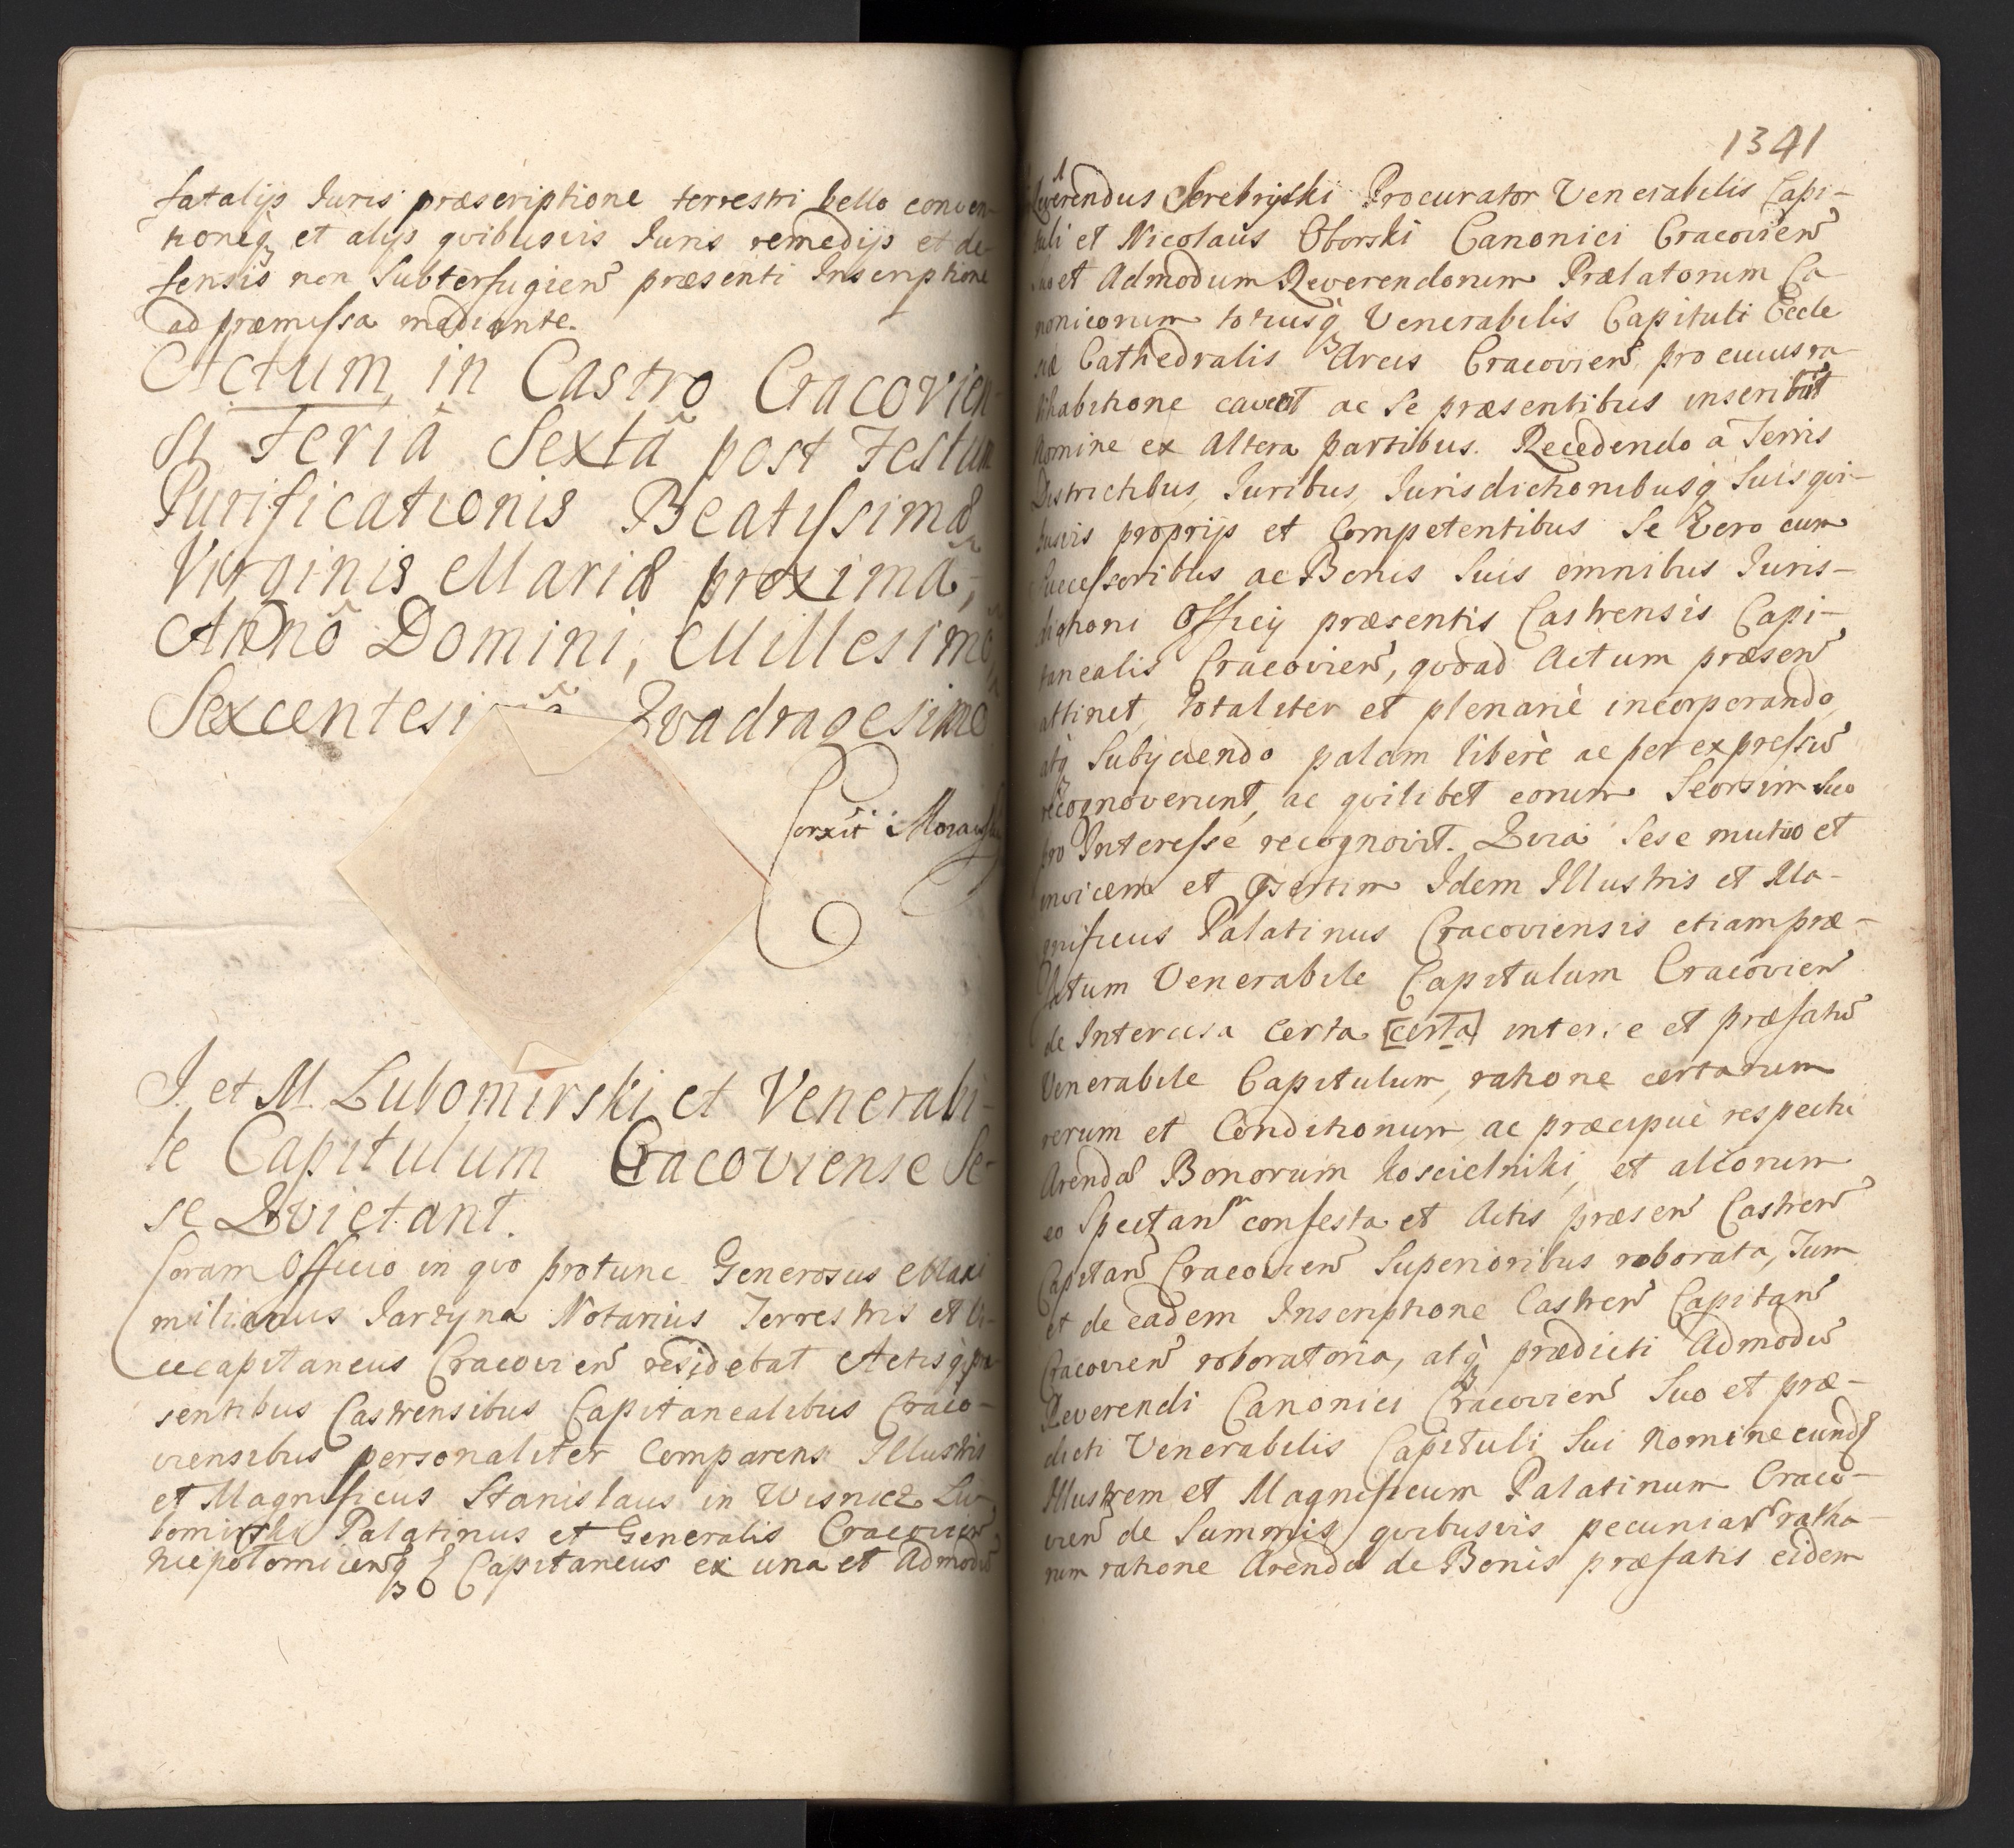 fatalijs Juris præscriptione terrestri bello conven-
tioneq3 et alijs qvibusvis Juris remedijs et de-
fensis non Subterfugien præsenti Inscriptione
ad præmissa mediante.
Actum in Castro Cracovien-
si Feriâ Sextâ post Festum
Purificationis Beatissimæ
Virginis Mariæ proximâ,
Annô Domini, Millesimô
Qvadragesimô
Corxit Morawski
I. et M. Lubomirski et Venerabi-
le Capitulum Cracoviense Se-
se Qvietant.
Coram Officio in qvo protunc Generosus Maxi
milianus Jarzyna Notarius Terrestris et Vi-
cecapitaneus Cracovien residebat Actisq3 præ
sentibus Castrensibus Capitanealibus Craco-
viensibus personaliter Comparens Illustris
et Magnificus Stanislaus in Wisnicz Lu-
bomirski Palatinus et Generalis Cracovien
Niepolomicenq3 & Capitaneus ex una et Admodũ
1341
Reverendus Serebrijski Procurator Venerabilis Capi-
tuli et Nicolaus Oborski Canonici Cracovien
suo et Admodum Reverendorum Prælatorum Ca
nonicorum totiusq3 Venerabilis Capituli Eccle
siæ Cathedralis Arcis Cracovien pro cuius ra-
tihabitione cavent ac Se præsentibus inscribūt
Nomine ex Altera partibus. Recedendo a Terris
Districtibus, Juribus, Jurisdictionibusq3 Suis qvi-
busvis proprijs et Competentibus Se Vero cum
Successoribus ac Bonis Suis omnibus Juris-
dictioni Officij præsentis Castrensis Capi-
tanealis Cracovien, qvoad Actum præsen
attinet, totaliter et plenariè incorporando,
atq3 Subijciendo palam liberè ac per expressũ
recognoverunt, ac qvilibet eorum Seorsim Suo
pro Interesse recognovit. Qvia Sese mutuo et
invicem et Idem Illustris et Ma-
gnificus Palatinus Cracoviensis etiam præ-
fatum Venerabile Capitulum Cracovien
de Intercisa Certa [certa] inter se et præfatũ
Venerabile Capitulum, ratione certarum
rerum et Conditionum, ac præcipuè respectu
Arendæ Bonorum Koscielniki, et aliorum
eo Spectan confecta et Actis præsen Castren
Capitan Cracovien Superioribus roborata, Tum
et de eadem Inscriptione Castren Capitan
Cracovien roboratoria, atq3 prædicti Admodũ
Reverendi Canonici Cracovien Suo et præ-
dicti Venerabilis Capituli Sui Nomine eund
Illustrem et Magnificum Palatinum Craco-
vien de Summis qvibusvis pecuniar ratio-
num ratione Arendæ de Bonis præfatis eidem